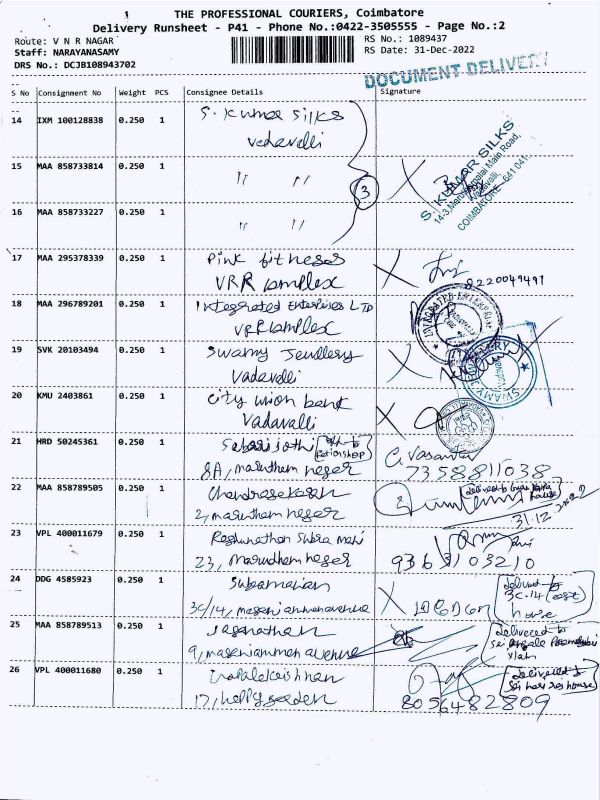 THE PROFESSIONAL COURIERS, Coimbatore
Delivery Runsheet - P41 - Phone No.:0422-3505555 - Page No.:2
Route: V N R NAGAR
RS No.: 1089437
Staff: NARAYANASAMY
RS Date: 31-Dec-2022
DRS No.: DCJB108943702
DOCUMENT DELIVERY
S No Consignment No Weight PCS Consignee Details Signature
14 IXM 100128838 0.250 1 S. Kumar Silks
Vadavalli
15 MAA 858733814 0.250 1 " "
3
S. KUMAR SILKS
Main Road,
Vadavalli
COIMBATORE - 641 041.
16 MAA 858733227 0.250 1 " "
17 MAA 295378339 0.250 1 Pink fitness
VRR complex
8220049491
18 MAA 296789201 0.250 1 Integrated Enterprises LTD
VRR complex
19 SVK 20103494 0.250 1 Swamy Jewllery
Vadavalli
20 KMU 2403861 0.250 1 city union bank
Vadavalli
21 HRD 50245361 0.250 1 Sabari jothi
8A, marutham nagar
G. Vasanta
7358811038
22 MAA 858789505 0.250 1 Chandrasekaran
2, marutham nagar
delivered to
house
31.12.2022
23 VPL 400011679 0.250 1 Raghunathan Subra mani
23, marudham nagar
9363103210
24 DDG 4585923 0.250 1 Subamanian
3C/14, avenue
delivered to
3C-14
house
25 MAA 858789513 0.250 1 Jaganathan
9, mareniamman avenue
delivered to
26 VPL 400011680 0.250 1 Gopalakrishnan
17, happy garden
delivered to
house
8056482809